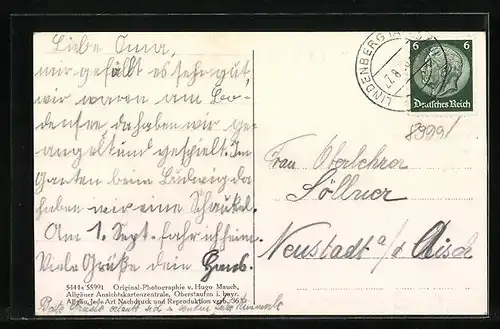 Liebe Oma,
mir gefällt es sehr gut,
wir waren am Bo-
densee, da haben wir ge-
angelt und gespielt. Im
Garten beim Ludwig da
haben wir eine Schaukel.
Am 1. Sept. fahr ich heim.
Viele Grüße dein Hans.
5444a 55991 Original-Photographie v. Hugo Mauch,
Allgäuer Ansichtskartenzentrale, Oberstaufen i. bayr.
Allgäu. Jede Art Nachdruck und Reproduktion verb.
LINDENBERG
6 6
Deutsches Reich
8999/
Frau Oberlehrer
Söllner
Neustadt a/d Aisch